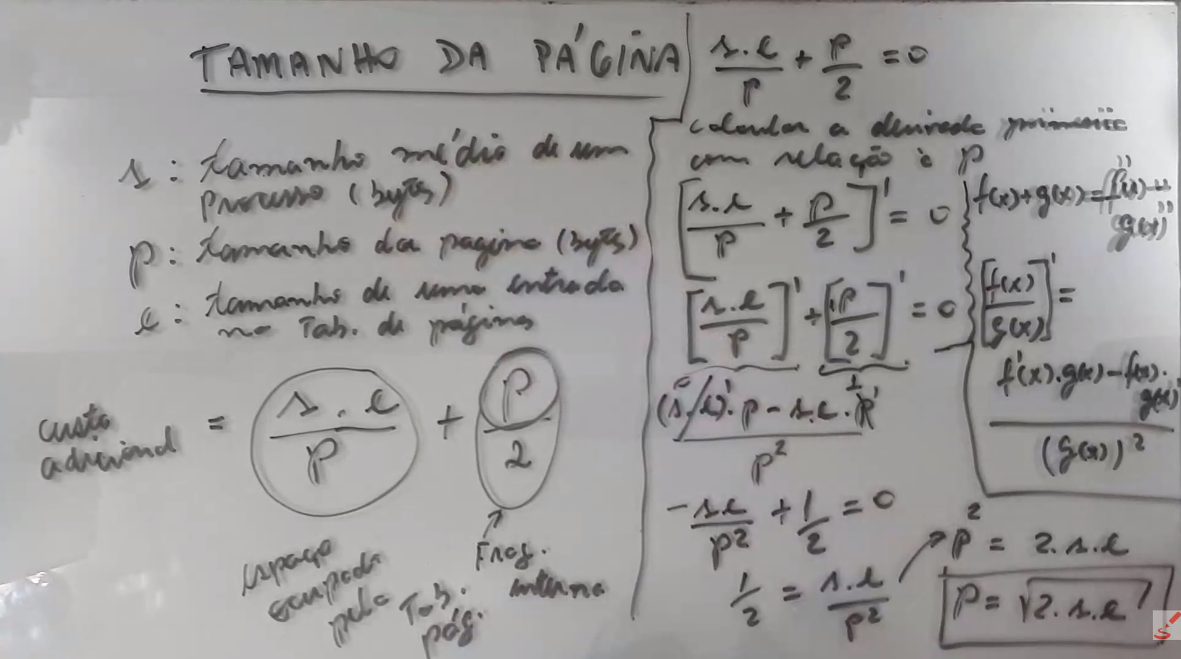 TAMANHO DA PÁGINA
s: tamanho médio de um
processo (bytes)
p: tamanho da pagina (bytes)
e: tamanho de uma entrada
na Tab. de páginas
custo
adicional
= s.e/p + p/2
espaço
ocupado
pela Tab.
pág.
Frag.
interna
s.e/p + p/2 = 0
calcular a derivada primeira
com relação à p
[s.e/p + p/2]' = 0
[s.e/p]' + [p/2]' = 0
(s.e)'.p - s.e.p'
p²
-s.e/p² + 1/2 = 0
1/2 = s.e/p²
f(x)+g(x)=f'(x)+
g'(x)
[f(x)/g(x)]' =
f'(x).g(x)-f(x).
g'(x)
(g(x))²
p² = 2.s.e
P = √2.s.e